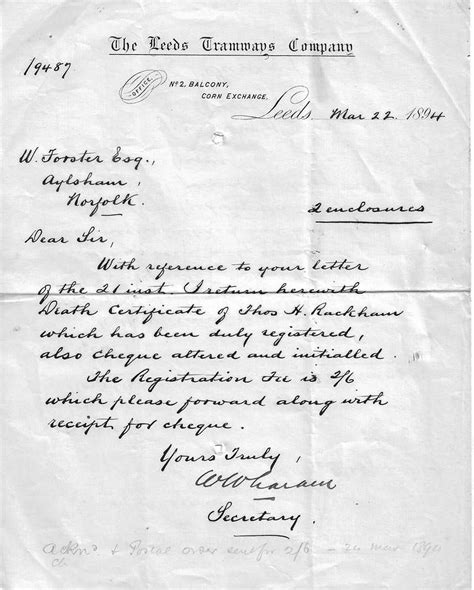 The Leeds Tramways Company
19487
OFFICE,
No 2, BALCONY,
CORN EXCHANGE,
Leeds, Mar 22 1894
W. Forster Esq.,
Aylsham,
Norfolk.
2 enclosures
Dear Sir,
With reference to your letter
of the 21 inst. I return herewith
Death Certificate of Thos H. Rackham
which has been duly registered,
also cheque altered and initialled.
The Registration Fee is 2/6
which please forward along with
receipt for cheque.
Yours Truly,
Secretary.
Ackn'd & Postal order sent for 2/6 - 24 Mar 1894